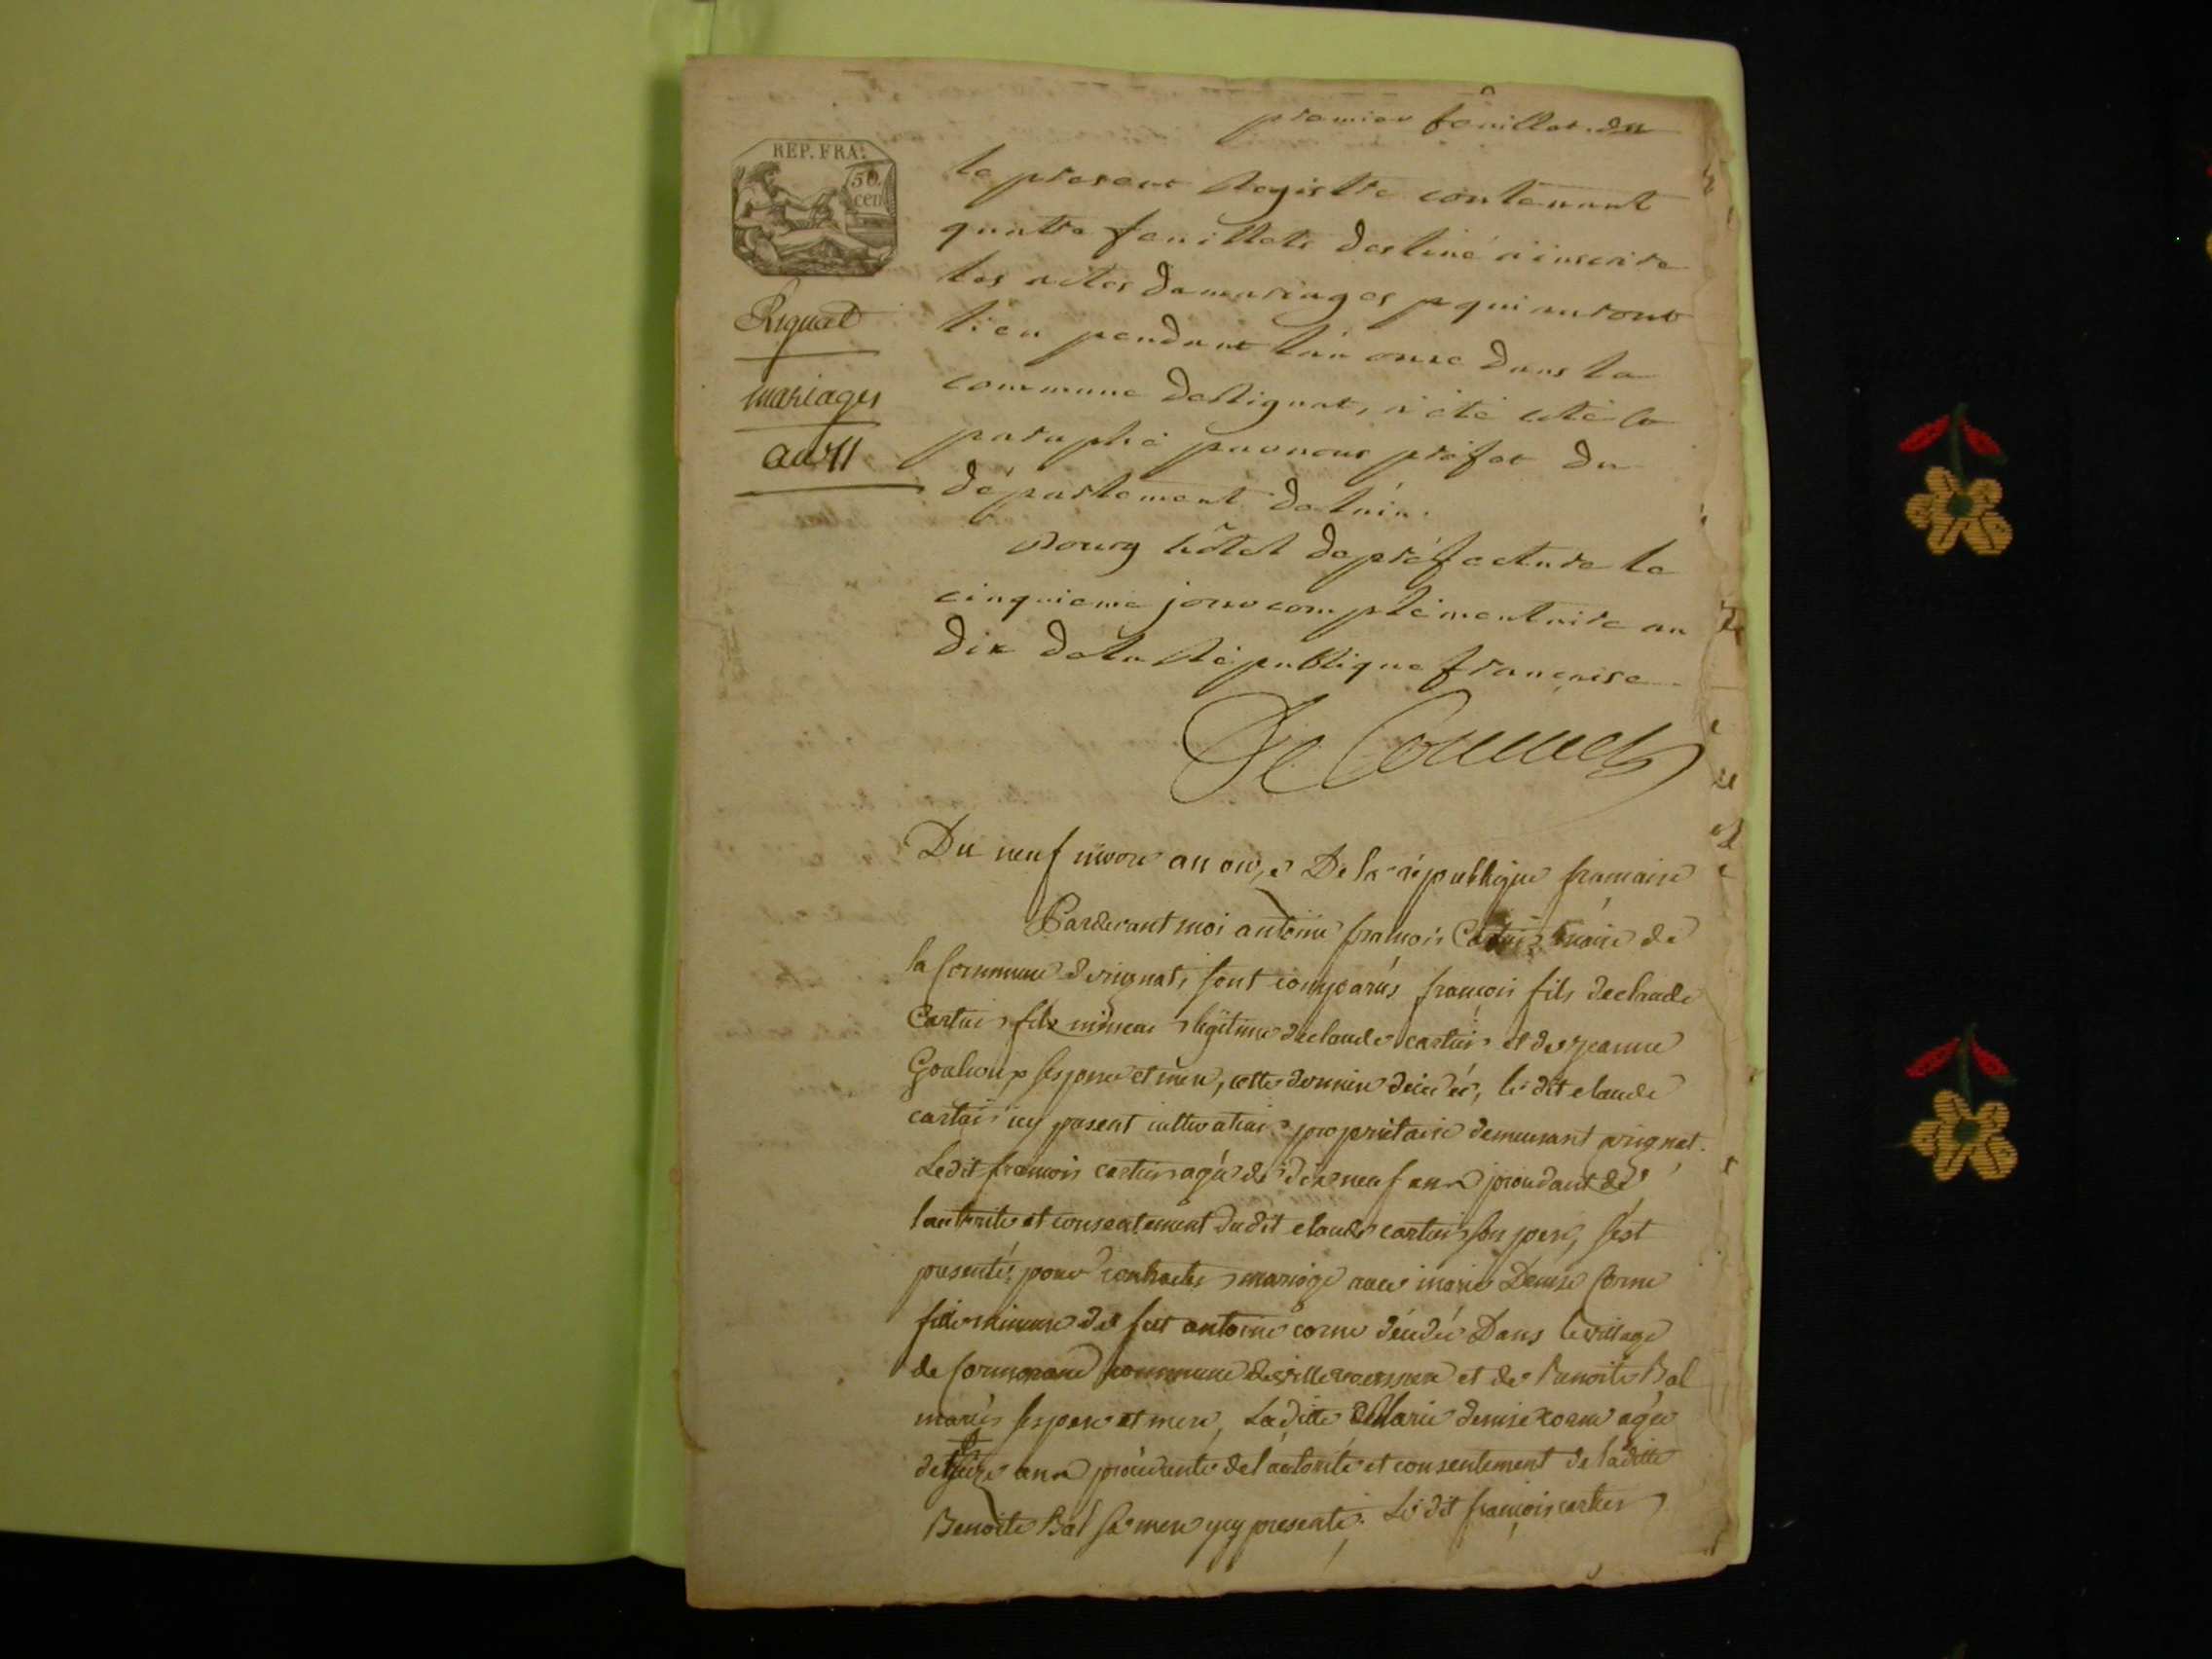 premier feuillet. Du
REP. FRA.
50.
cen
Rignat
mariages
an 11
le present Registre contenant
quatre feuillets destiné à inscrire
les actes de mariages qui auront
lieu pendant l'an onze dans la
commune de Rignat, a été coté &
paraphé par nous préfet du
département de l'ain.
Bourg hôtel de préfecture le
cinquieme jour complémentaire an
dix de la République française
Du neuf nivose an onze De la republique francaise
Pardevant moi antoine francois maire de
la Commune de rignat, sont comparus françois fils de claude
Cartier fils mineur légitime de claude cartier et de jeanne
ses pere et mere, cette derniere décédée, le dit claude
cartier icy present cultivateur proprietaire demeurant a rignat.
Ledit francois cartier agé de dix neuf ans procedant de
l'autorité et consentement du dit claude cartier son pere, s'est
presenté pour contracter mariage avec marie Denise Corne
fille mineure de feu antoine corne décédé Dans le village
de commune de villereversure et de Benoite Bal
mariés ses pere et mere, La ditte Marie denise corne agée
de seize ans procedante de l'autorité et consentement de la ditte
Benoite Bal sa mere ycy presente. Le dit francois cartier